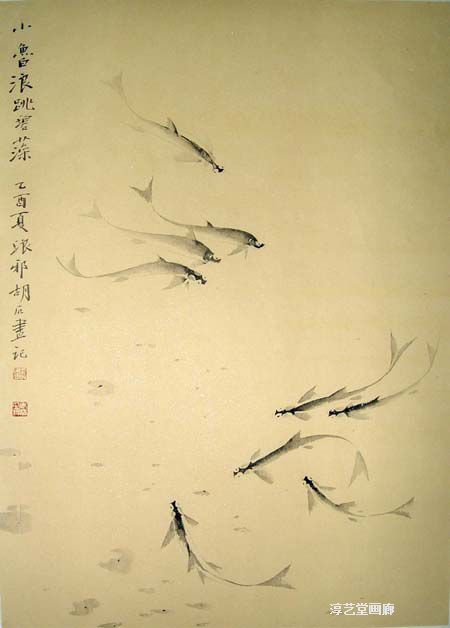 小魯浪跳碧藻 乙酉夏琅邪胡石畫記
淳艺堂画廊